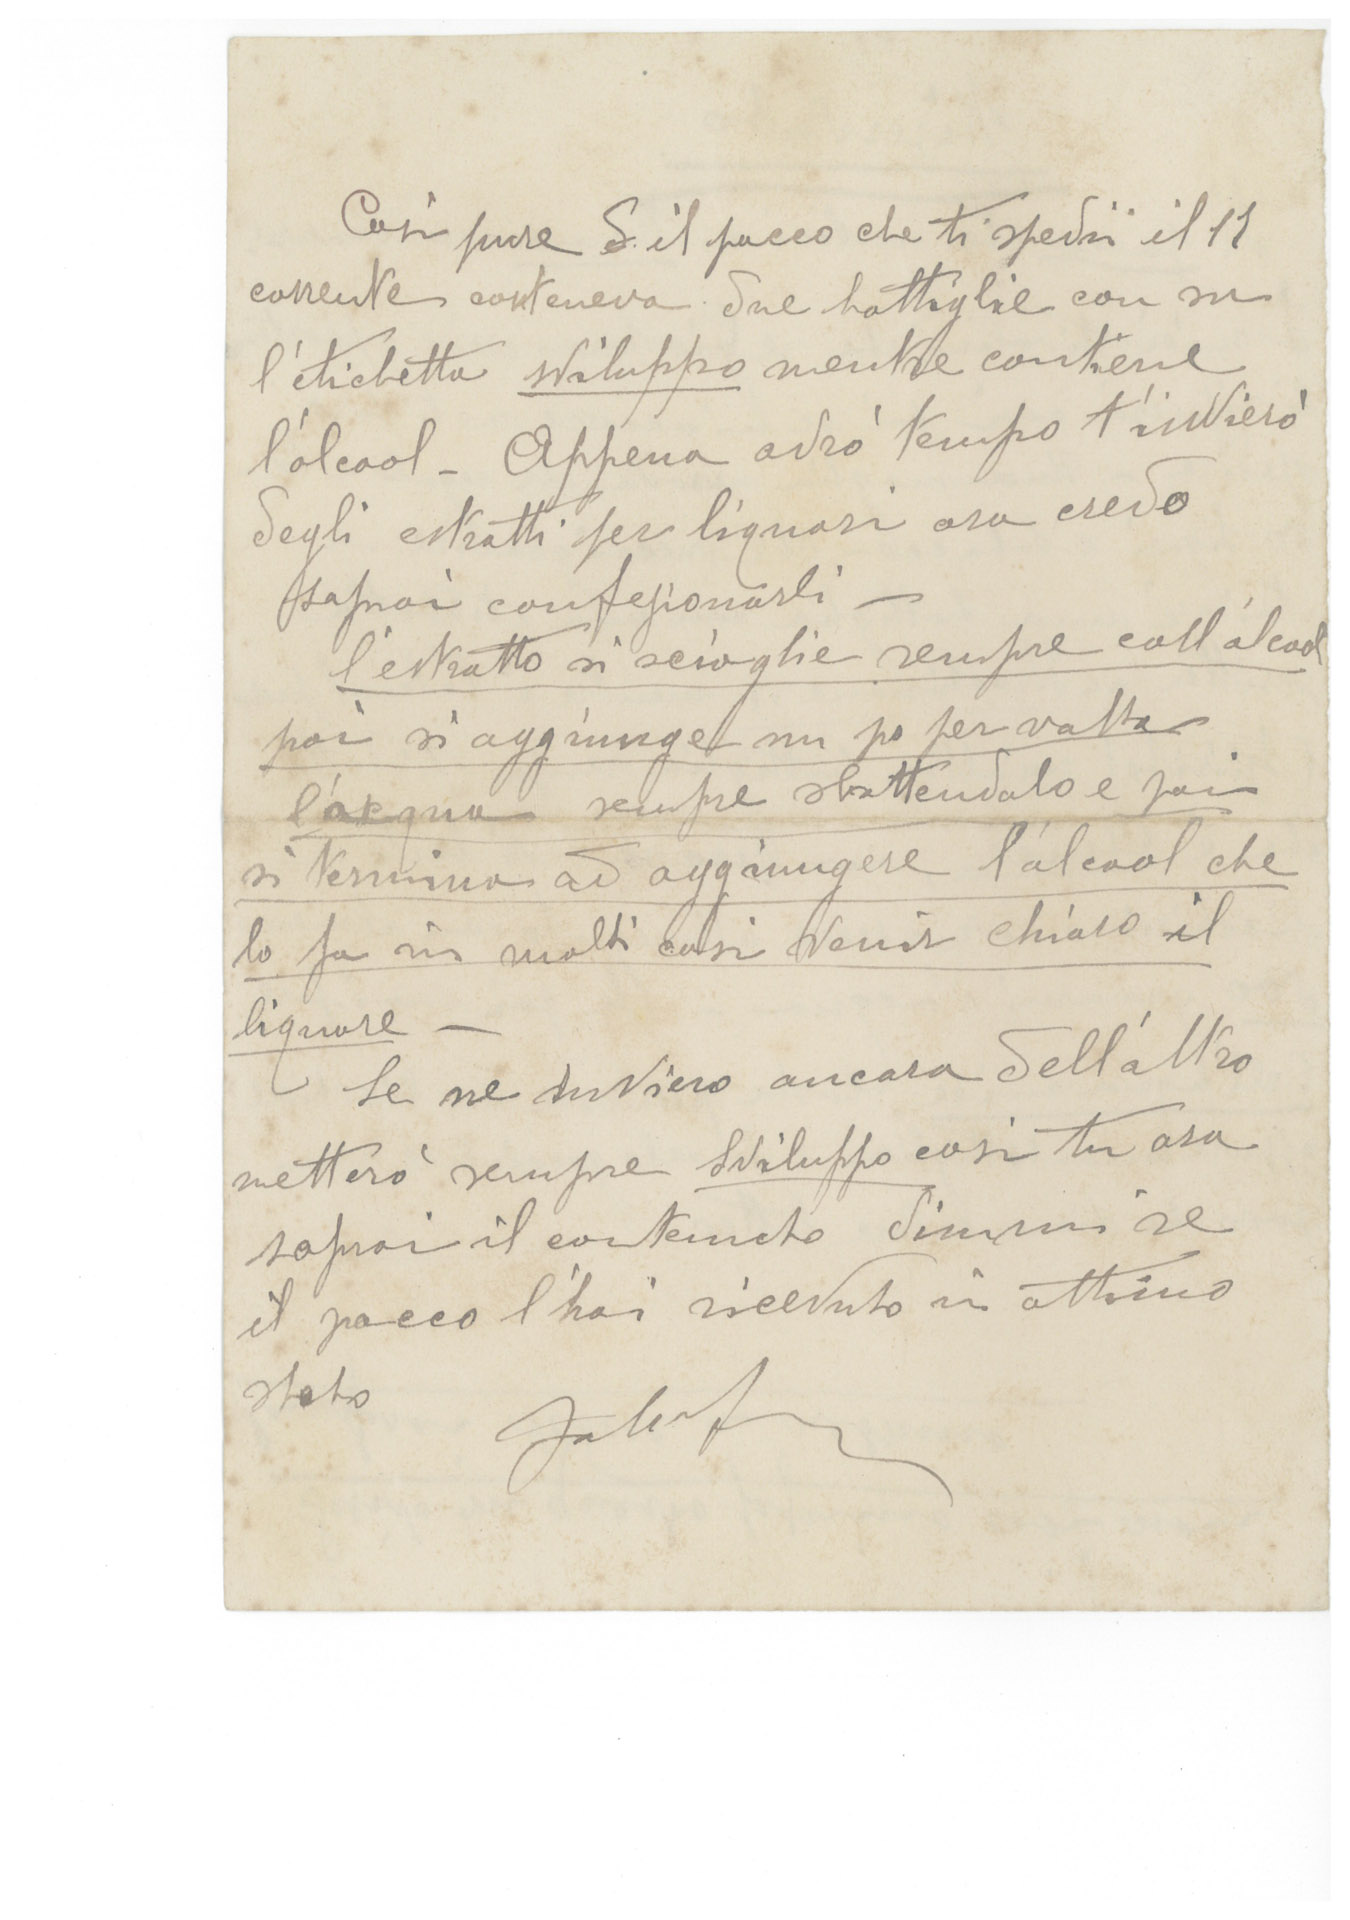 Così pure il pacco che ti spedii il 11
corrente conteneva due bottiglie con su
l'étichetta sviluppo mentre contiene
l'álcool - Appena avrò tempo t'invierò
degli estratti per liquori ora credo
saprai confezionarli -
l'estratto si scioglie sempre coll'álcool
poi si aggiunge un po per volta
l'acqua sempre sbattendolo e poi
si termina ad aggiungere l'álcool che
lo fa in molti casi venir chiaro il
liquore -
Se ne invierò ancora dell'áltro
metterò sempre Sviluppo così tu ora
saprai il contenuto dimmi se
il pacco l'hai ricevuto in ottimo
stato